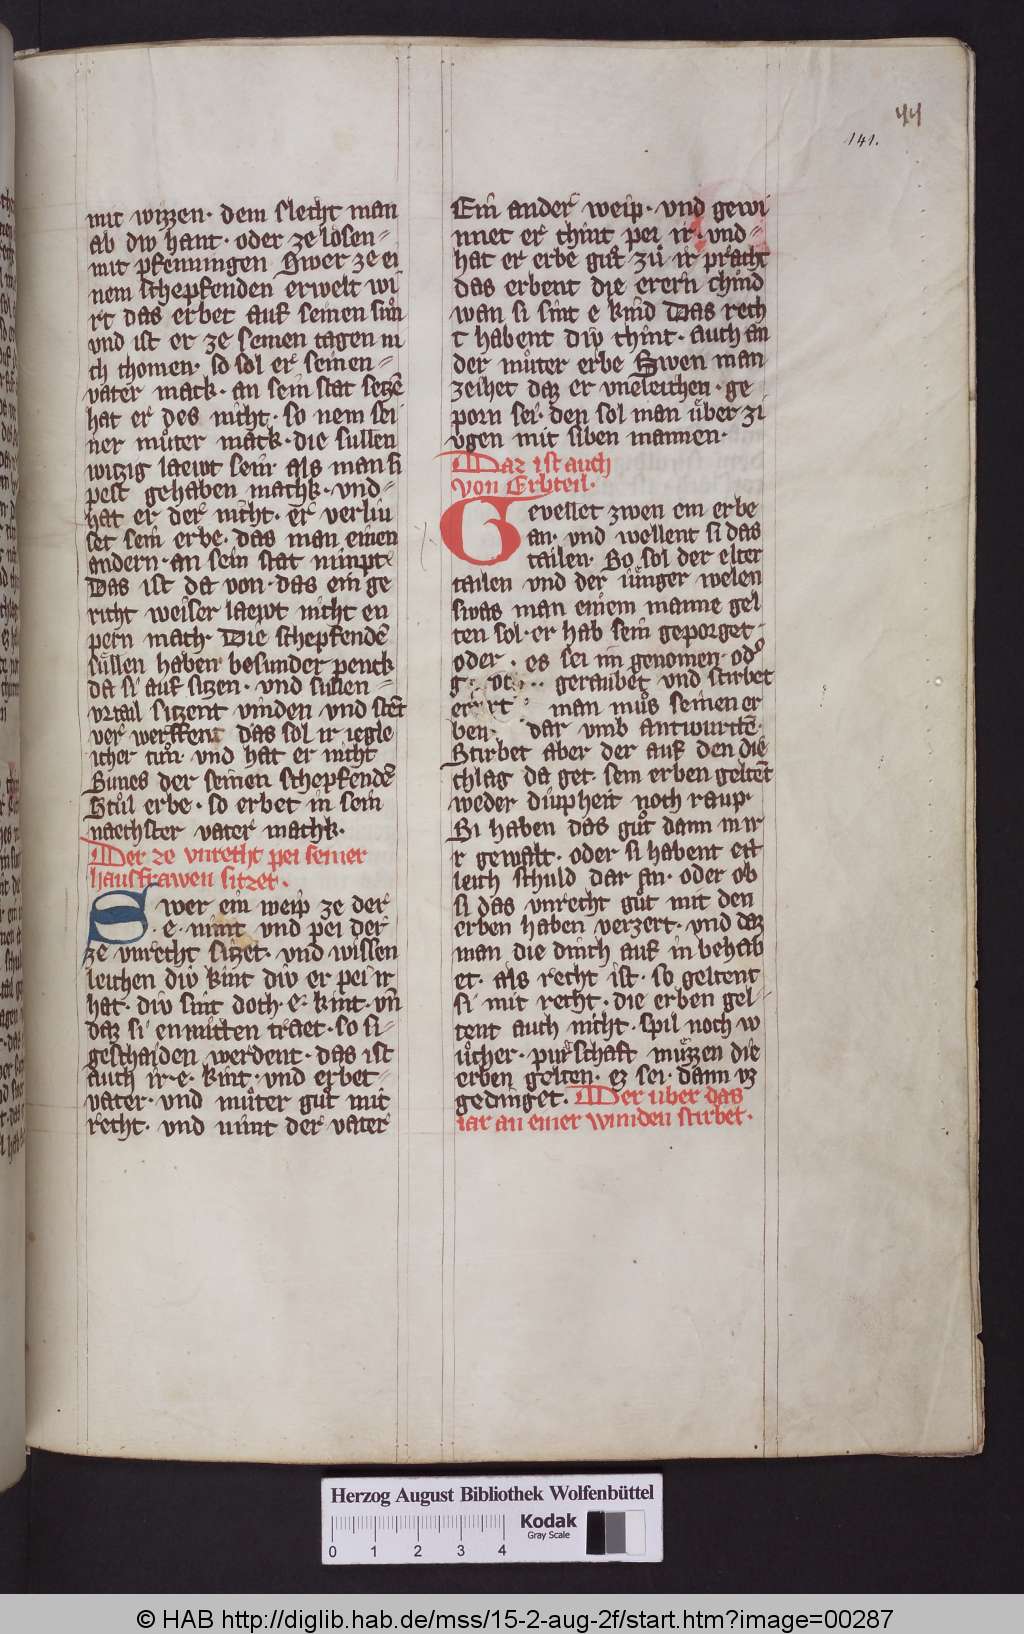 44
141.
mit wizzen· dem slecht man
ab diw hant· oder ze lösen
mit pfenningen Swer ze ei
nem schepfenden erwelt wi
rt das erbet auf seinen sůn
vnd ist er ze seinen tagen ni
ch chomen· so sol er seinen
vater mack· an sein stat setzē
hat er des nicht· so nem sei
ner můter mack· die sullen
witzig laewt sein· als man si
pest gehaben machk· vnd
hat er der nicht· er verliu
set sein erbe· das man einen
andern· an sein stat nimpt
Das ist da von· das ein ge
richt weiser laewt nicht en
pern mach· Die schepfendē
sullen haben besunder penck
da si auf sitzen· vnd sullen
vrtail sitzent vinden vnd stēt
ver werffent das sol ir iegle
icher tůn· vnd hat er nicht
Sunes der seinen schepfendē
Stůl erbe· so erbet in sein
naechster vater machk·
Der ze vnrecht pei seiner
hausfrawen sitzet·
Swer ein weip ze der
·e· nimt vnd pei der
ze vnrecht sitzet· vnd wissen
leichen diw kint diw er pei ir
hat· diw sint doch ·e· kint· vn̄
daz si enmitten traet· so si
geschaiden werdent· das ist
auch ir ·e· kint· vnd erbet
vater· vnd můter gůt mit
recht· vnd nimt der vater
Ein ander weip· vnd gewi
nnet er chint pei ir· vnd
hat er erbe gůt zů ir pracht
das erbent die erern chind
wan si sint e kind Das rech
t habent diw chint· auch an
der můter erbe Swen man
zeihet daz er vneleichen· ge
porn sei· den sol man über zi
vgen mit siben mannen·
Daz ist auch
von Erbteil·
Gevellet zwen ein erbe
an· vnd wellent si das
tailen· So sol der elter
tailen vnd der iünger welen
swas man einem manne gel
ten sol· er hab sein geporget
oder· es sei im genomen· od̓
geraubet vnd stirbet
er man můs seinen er
ben· dar vmb antwurtē·
Stirbet aber der auf den die
chlag da get· sein erben geltēt
weder diupheit noch raup·
Si haben das gůt dann in ir
r gewalt· oder si habent eit
leich schuld dar an· oder ob
si das vnrecht gůt mit den
erben haben verzert· vnd daz
man die dinch auf in behab
et· als recht ist· so geltent
si mit recht· die erben gel
tent auch nicht· spil noch w
ůcher· pürschaft müzzen die
erben gelten· ez sei· dann vz
gedinget· Wer uber das
iar an einer wunden stirbet·
Herzog August Bibliothek Wolfenbüttel
0 1 2 3 4
Kodak
Gray Scale
© HAB http://diglib.hab.de/mss/15-2-aug-2f/start.htm?image=00287